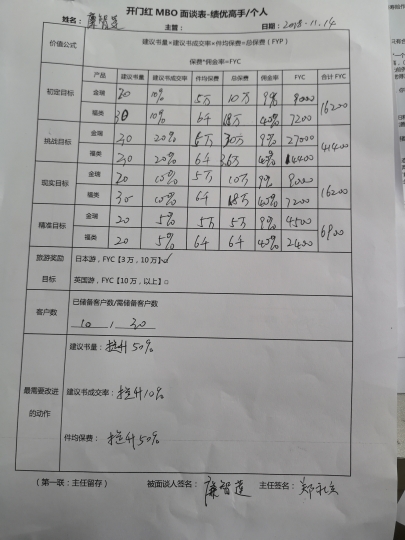 开门红 MBO 面谈表-绩优高手/个人
姓名: 廖智莲 主管: 日期: 2018.11.14
价值公式 建议书量×建议书成交率×件均保费=总保费(FYP)
保费*佣金率=FYC
产品 建议书量 建议书成交率 件均保费 总保费 佣金率 FYC 合计 FYC
初定目标 金瑞 20 10% 5万 10万 9% 9000 16200
福类 30 10% 6千 1.8万 40% 7200
挑战目标 金瑞 30 20% 5万 30万 9% 27000 41400
福类 30 20% 6千 3.6万 40% 14400
现实目标 金瑞 20 10% 5万 10万 9% 9000 16200
福类 30 10% 6千 1.8万 40% 7200
精准目标 金瑞 20 5% 5万 5万 9% 4500 6900
福类 20 5% 6千 6千 40% 2400
旅游奖励目标 日本游,FYC【3万,10万】☑
英国游,FYC【10万,以上】□
客户数 已储备客户数/需储备客户数
10 / 30
最需要改进的动作 建议书量: 提升50%
建议书成交率: 提升10%
件均保费: 提升50%
(第一联:主任留存) 被面谈人签名: 廖智莲 主任签名: